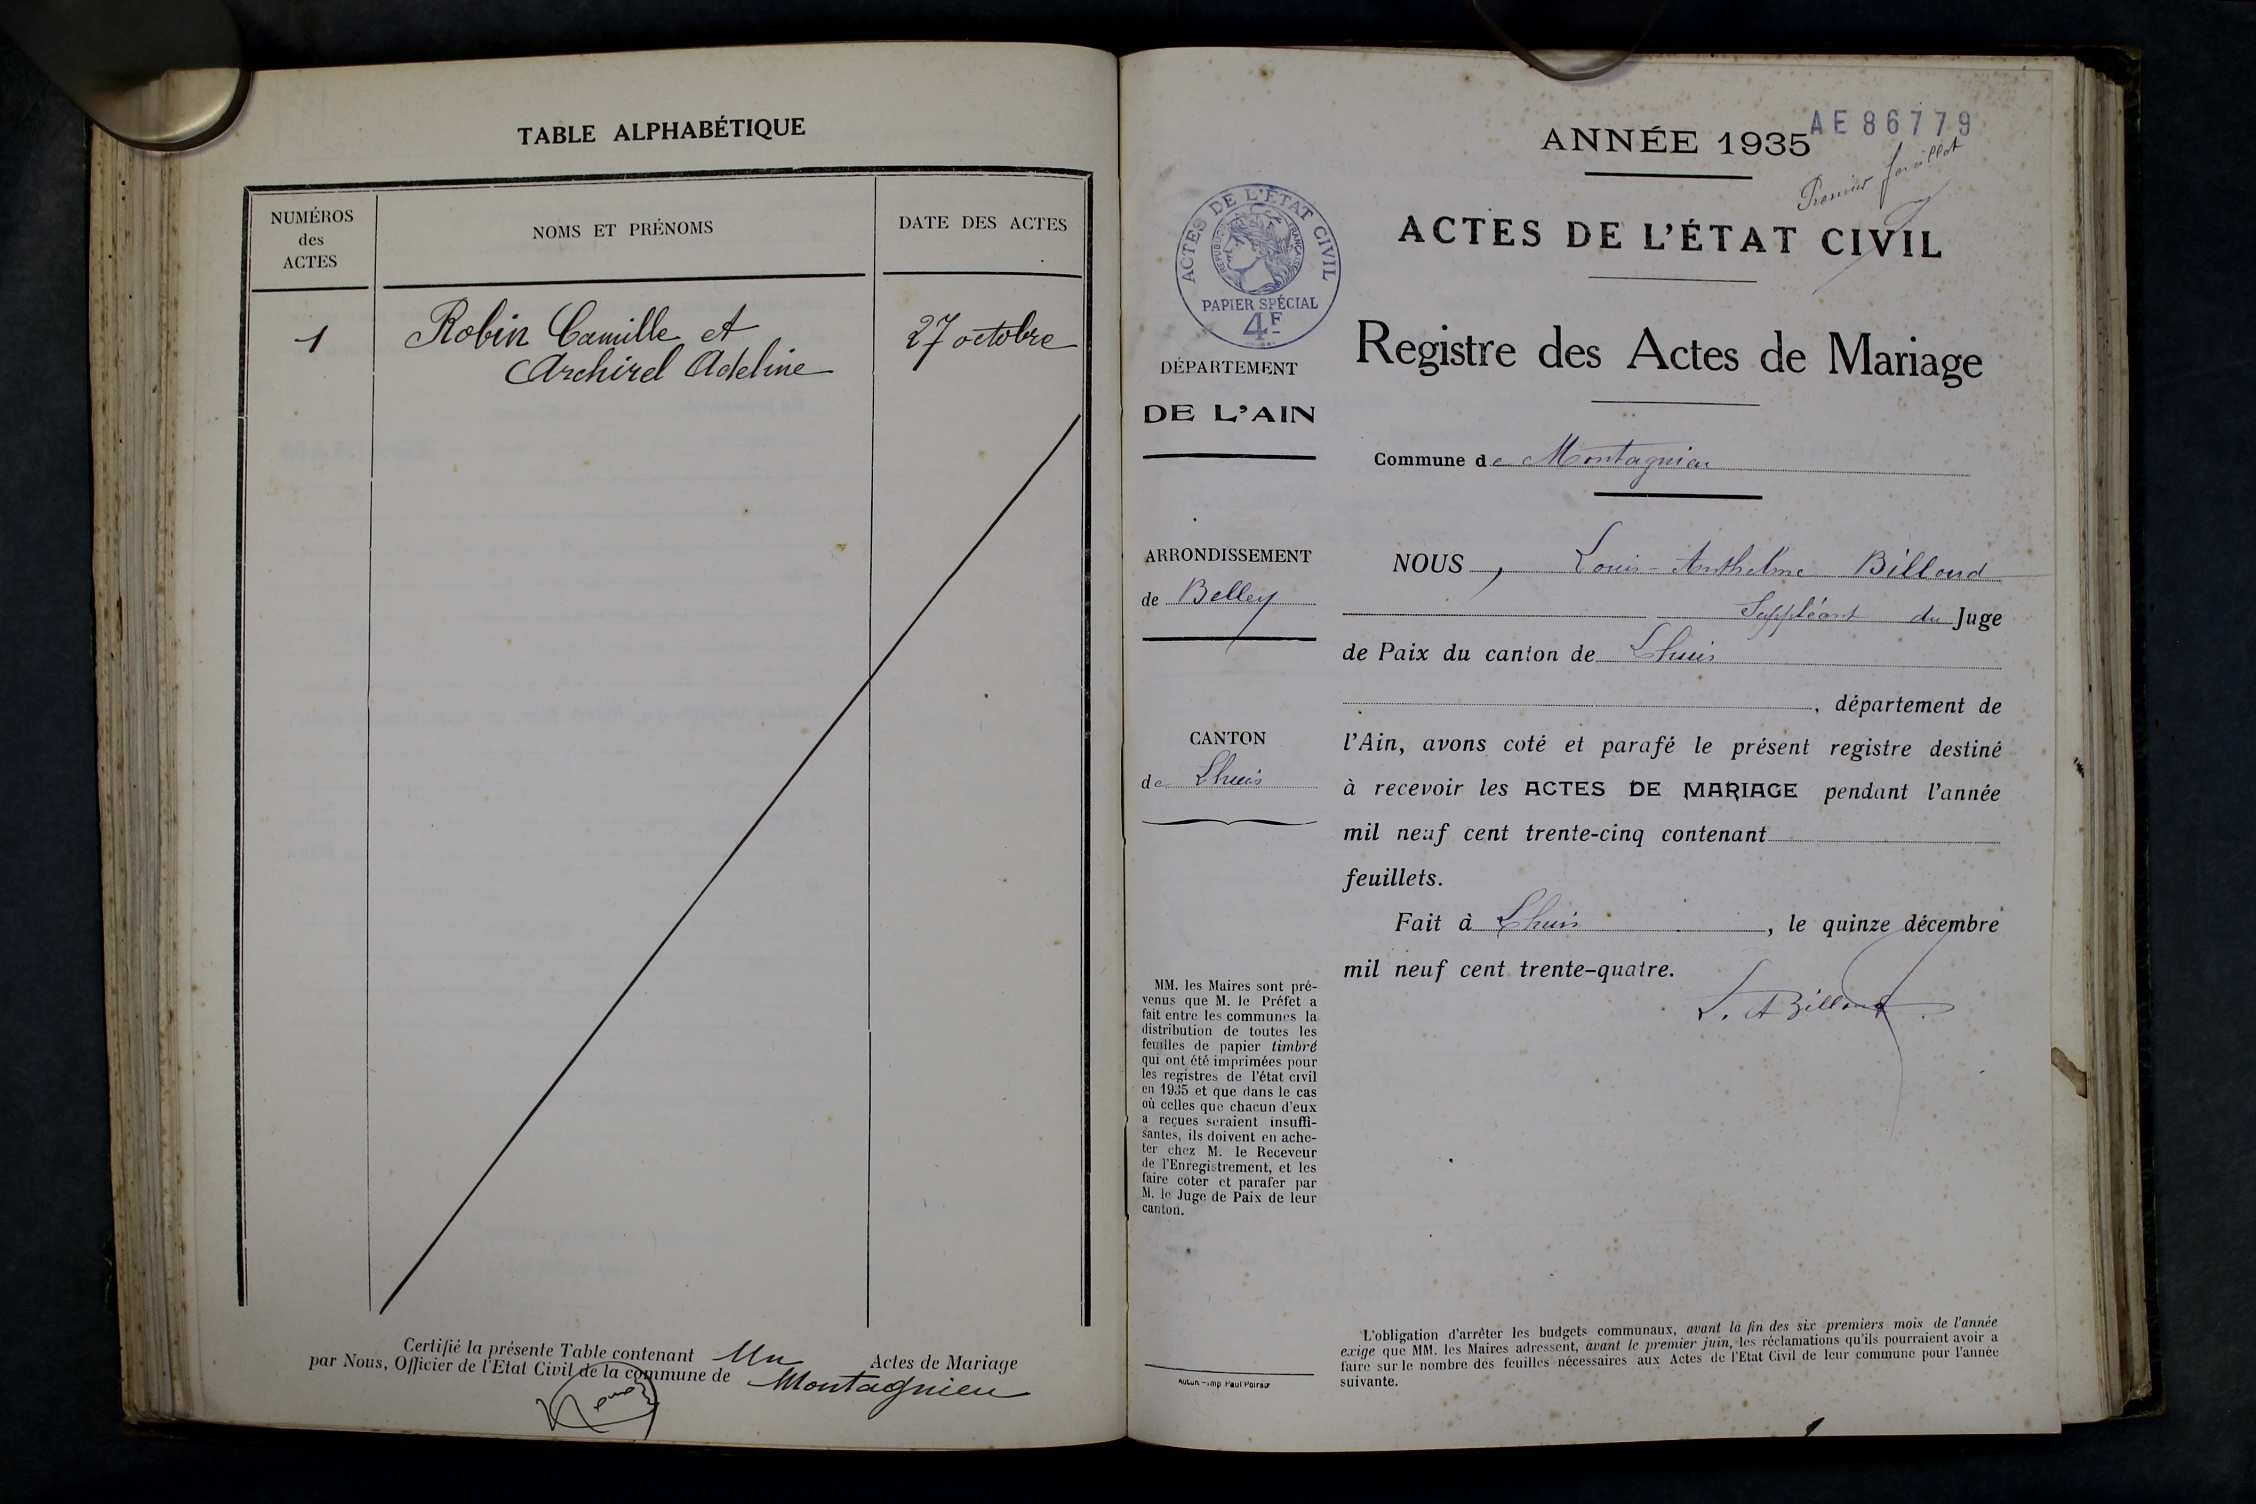 TABLE ALPHABÉTIQUE
NUMÉROS
des
ACTES
NOMS ET PRÉNOMS
DATE DES ACTES
1
Robin Camille et
Archirel Adeline
27 octobre
Certifié la présente Table contenant Un Actes de Mariage
par Nous, Officier de l'Etat Civil de la commune de Montagnieu
AE 86779
ANNÉE 1935
Premier feuillet
ACTES DE L'ÉTAT CIVIL
ACTES DE L'ÉTAT CIVIL
RÉPUBLIQUE FRANÇAISE
PAPIER SPÉCIAL
4F
Registre des Actes de Mariage
DÉPARTEMENT
DE L'AIN
Commune de Montagnieu
ARRONDISSEMENT
de Belley
CANTON
de Lhuis
NOUS, Louis-Anthelme Billoud
Suppléant du Juge
de Paix du canton de Lhuis
, département de
l'Ain, avons coté et parafé le présent registre destiné
à recevoir les ACTES DE MARIAGE pendant l'année
mil neuf cent trente-cinq contenant
feuillets.
Fait à Lhuis, le quinze décembre
mil neuf cent trente-quatre.
L. A Billoud
MM. les Maires sont pré-
venus que M. le Préfet a
fait entre les communes la
distribution de toutes les
feuilles de papier timbré
qui ont été imprimées pour
les registres de l'état civil
en 1935 et que dans le cas
où celles que chacun d'eux
a reçues seraient insuffi-
santes, ils doivent en ache-
ter chez M. le Receveur
de l'Enregistrement, et les
faire coter et parafer par
M. le Juge de Paix de leur
canton.
L'obligation d'arrêter les budgets communaux, avant la fin des six premiers mois de l'année
exige que MM. les Maires adressent, avant le premier juin, les réclamations qu'ils pourraient avoir a
faire sur le nombre des feuilles nécessaires aux Actes de l'Etat Civil de leur commune pour l'année
suivante.
Autun - Imp Paul Poirson